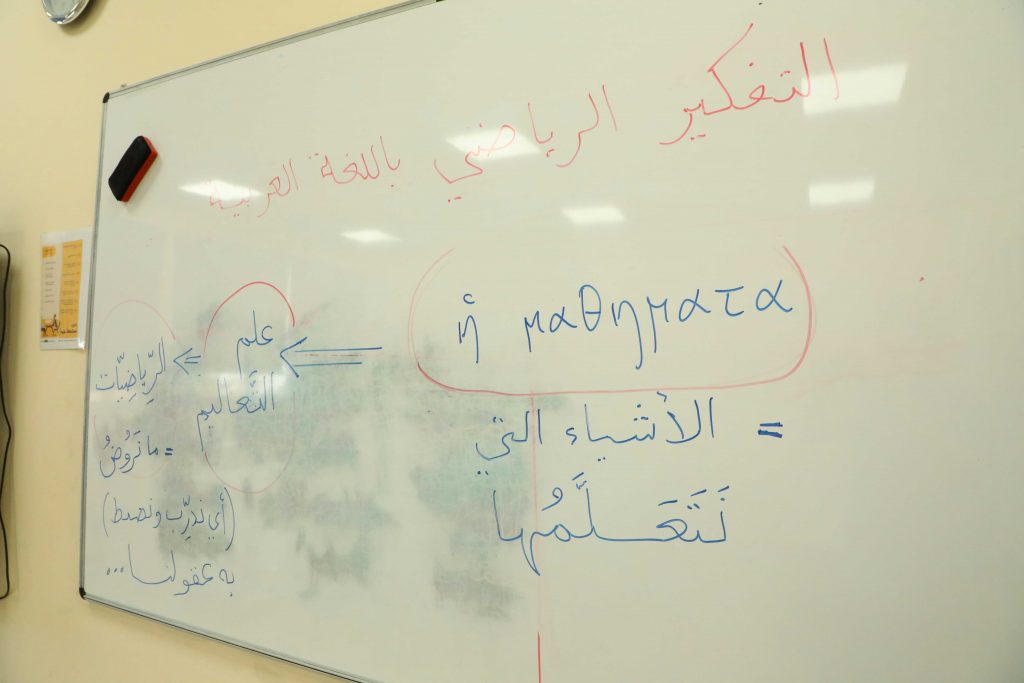 التفكير الرياضي باللغة العربية
ἡ μαθηματα
= الأشياء التي
نَتَعَلَّمُها
علم
التَّعاليم
الرِّياضِيَّات
= ما نَرُوضُ
(أي ندرِّب ونضبط)
به عقولنا...